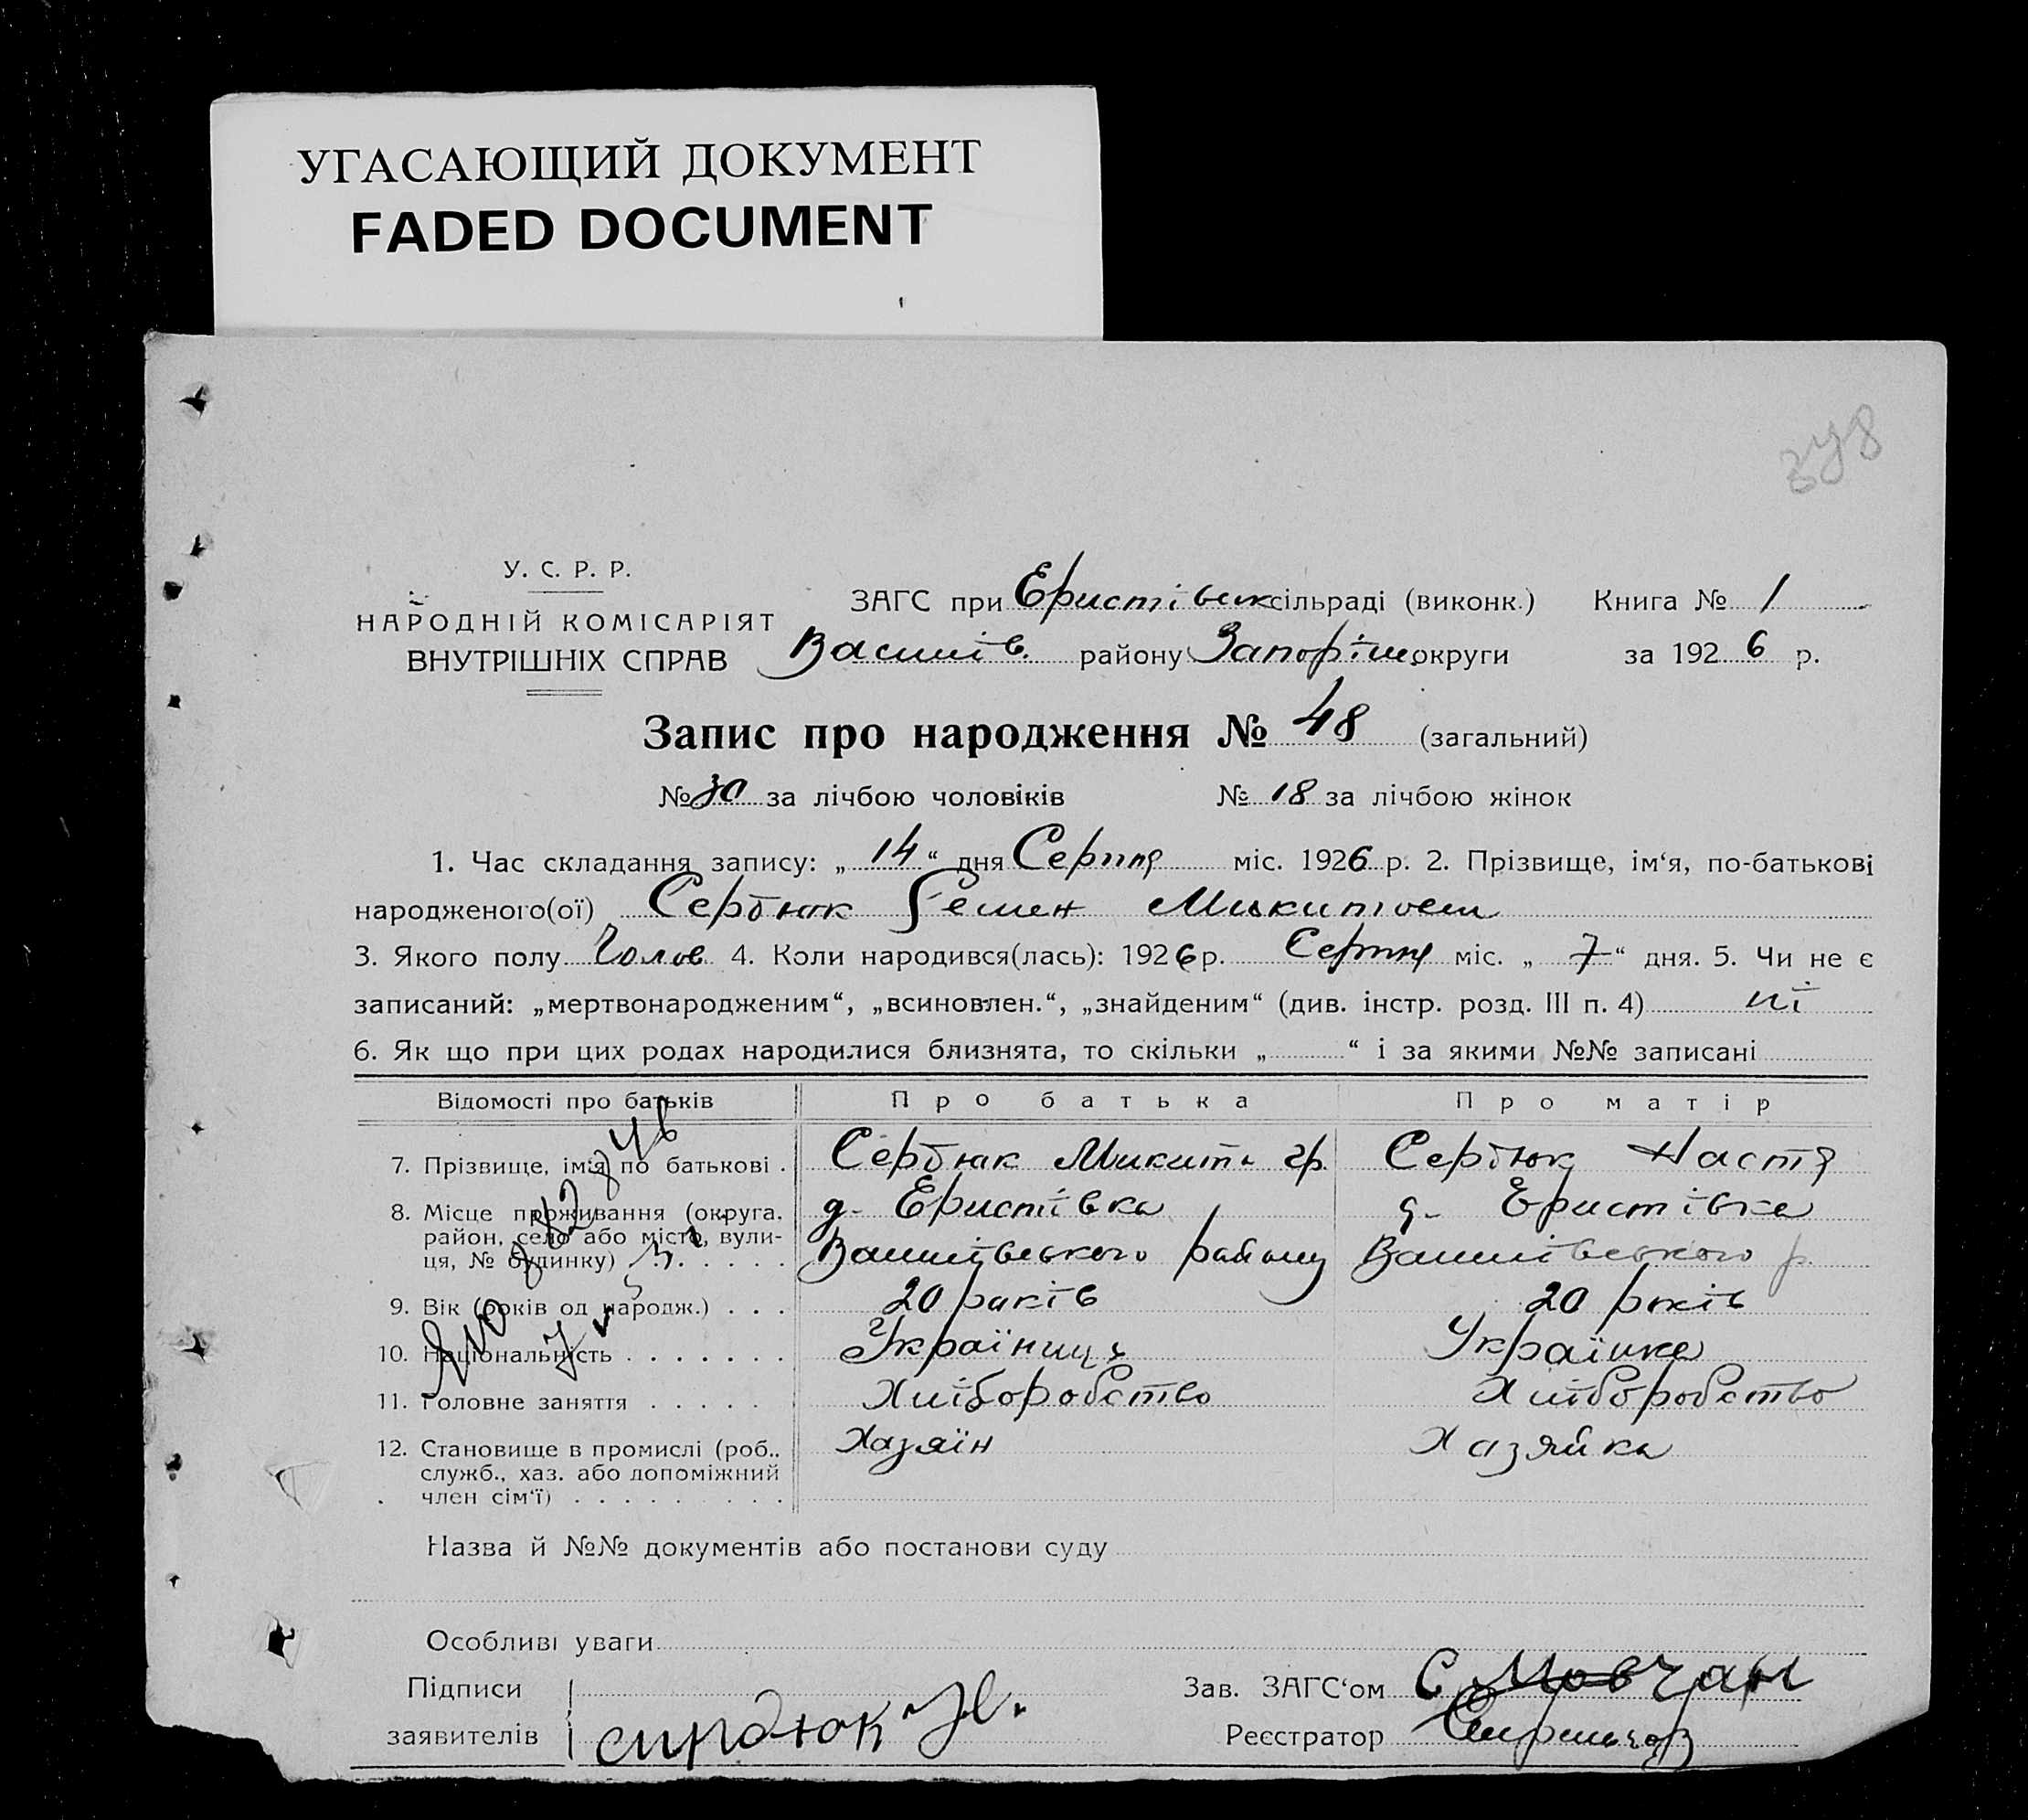 УГАСАЮЩИЙ ДОКУМЕНТ
FADED DOCUMENT
У. С. Р. Р.
НАРОДНІЙ КОМІСАРІЯТ
ВНУТРІШНІХ СПРАВ
ЗАГС при Еристівск сільраді (виконк.) Книга № 1
Васинів. району Запоріж. округи за 1926 р.
Запис про народження № 48 (загальний)
№ 30 за лічбою чоловіків № 18 за лічбою жінок
1. Час складання запису: „14“ дня Серпня міс. 1926 р. 2. Прізвище, ім‘я, по-батькові
народженого(ої) Сердюк Семен Микитов
3. Якого полу Чолов 4. Коли народився(лась): 1926 р. Серпня міс. „7“ дня. 5. Чи не є
записаний: „мертвонародженим“, „всиновлен.“, „знайденим“ (див. інстр. розд. III п. 4) ні
6. Як що при цих родах народилися близнята, то скільки „ “ і за якими №№ записані
Відомості про батьків Про батька Про матір
7. Прізвище, ім‘я по батькові . Сердюк Микита гр. Сердюк Настя
8. Місце проживання (округа. д. Еристівка д. Еристівка
район, село або місто, вули-
ця, № будинку) району р.
9. Вік (років од народж.) . . . 20 років 20 років
10. Національність . . . . . . . Українець Українка
11. Головне заняття . . . . . Хліборобство Хліборобство
12. Становище в промислі (роб.. Хазяїн Хазяйка
служб., хаз. або допоміжний
член сім‘ї) . . . . . . . . .
Назва й №№ документів або постанови суду
Особливі уваги
Підписи Зав. ЗАГС‘ом С Мовчан
заявителів сирдюк Н. Реєстратор